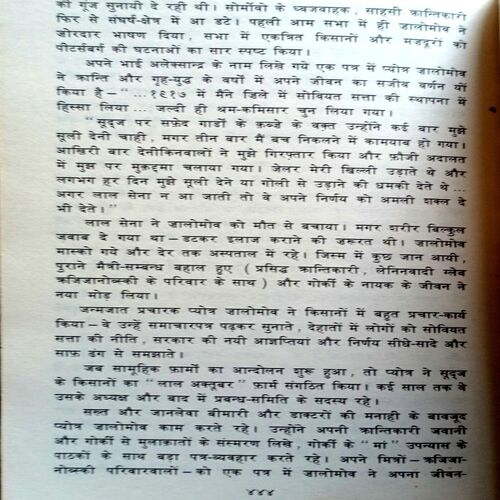 की गूंज सुनायी दे रही थी। सोर्मोवो के ध्वजवाहक, साहसी क्रान्तिकारी
फिर से संघर्ष-क्षेत्र में आ डटे। पहली आम सभा में ही ज़ालोमोव ने
ज़ोरदार भाषण दिया, सभा में एकत्रित किसानों और मज़दूरों को
पीटर्सबर्ग की घटनाओं का सार स्पष्ट किया।
अपने भाई अलेक्सान्द्र के नाम लिखे गये एक पत्र में प्योत्र ज़ालोमोव
ने क्रान्ति और गृह-युद्ध के वर्षों में अपने जीवन का सजीव वर्णन यों
किया है – "...१९१७ में मैंने ज़िले में सोवियत सत्ता की स्थापना में
हिस्सा लिया ... जल्दी ही श्रम-कमिसार चुन लिया गया।
"सूद्ज़ पर सफ़ेद गार्डों के क़ब्ज़े के वक़्त उन्होंने कई बार मुझे
सूली देनी चाही, मगर तीन बार मैं बच निकलने में कामयाब हो गया।
आख़िरी बार देनीकिनवालों ने मुझे गिरफ़्तार किया और फ़ौजी अदालत
में मुझ पर मुक़द्दमा चलाया गया। जेलर मेरी खिल्ली उड़ाते थे और
लगभग हर दिन मुझे सूली देने या गोली से उड़ाने की धमकी देते थे ...
अगर लाल सेना न आ जाती तो वे अपने निर्णय को अमली शक्ल दे
भी देते।"
लाल सेना ने ज़ालोमोव को मौत से बचाया। मगर शरीर बिल्कुल
जवाब दे गया था – डटकर इलाज कराने की ज़रूरत थी। ज़ालोमोव
मास्को गये और देर तक अस्पताल में रहे। जिस्म में कुछ जान आयी,
पुराने मैत्री-सम्बन्ध बहाल हुए (प्रसिद्ध क्रान्तिकारी, लेनिनवादी ग्लेब
क्रजिजानोव्स्की के परिवार के साथ) और गोर्की के नायक के जीवन ने
नया मोड़ लिया।
जन्मजात प्रचारक प्योत्र ज़ालोमोव ने किसानों में बहुत प्रचार-कार्य
किया – वे उन्हें समाचारपत्र पढ़कर सुनाते, देहातों में लोगों को सोवियत
सत्ता की नीति, सरकार की नयी आज्ञप्तियां और निर्णय सीधे-सादे और
साफ़ ढंग से समझाते।
जब सामूहिक फ़ार्मों का आन्दोलन शुरू हुआ, तो प्योत्र ने सूद्ज़
के किसानों का "लाल अक्तूबर" फ़ार्म संगठित किया। कई साल तक वे
उसके अध्यक्ष और बाद में प्रबन्ध-समिति के सदस्य रहे।
सख़्त और जानलेवा बीमारी और डाक्टरों की मनाही के बावजूद
प्योत्र ज़ालोमोव काम करते रहे। उन्होंने अपनी क्रान्तिकारी जवानी
और गोर्की से मुलाक़ातों के संस्मरण लिखे, गोर्की के "मां" उपन्यास के
पाठकों के साथ बड़ा पत्र-व्यवहार करते रहे। अपने मित्रों – क्रजिजा-
नोव्स्की परिवारवालों – को एक पत्र में ज़ालोमोव ने अपना जीवन-
४४४